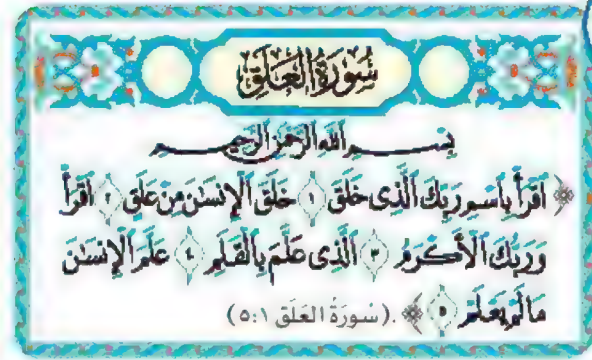 سُورَةُ العَلَقِ
بِسْمِ اللَّهِ الرَّحْمَٰنِ الرَّحِيمِ
﴿ ٱقْرَأْ بِٱسْمِ رَبِّكَ ٱلَّذِى خَلَقَ ١ خَلَقَ ٱلْإِنسَٰنَ مِنْ عَلَقٍ ٢ ٱقْرَأْ
وَرَبُّكَ ٱلْأَكْرَمُ ٣ ٱلَّذِى عَلَّمَ بِٱلْقَلَمِ ٤ عَلَّمَ ٱلْإِنسَٰنَ
مَا لَمْ يَعْلَمْ ٥ ﴾ . (سُورَةُ العَلَقِ ١:٥)